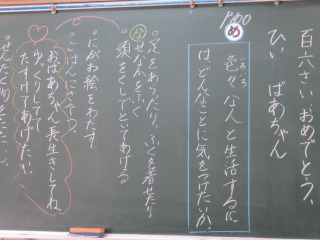 百六さい おめでとう、
ひい ばあちゃん
P100
め
色々な人と生活するに
いろいろ
は、どんなことに気をつけたいか。
・足をあらったり、ふくを着せたり
な
せなかをふく
頭をくしでとしてあげる
・にがお絵をわたす
・ごはんに
おばあちゃん長生きしてね。
ゆっくりしてて
たすけてあげたい。